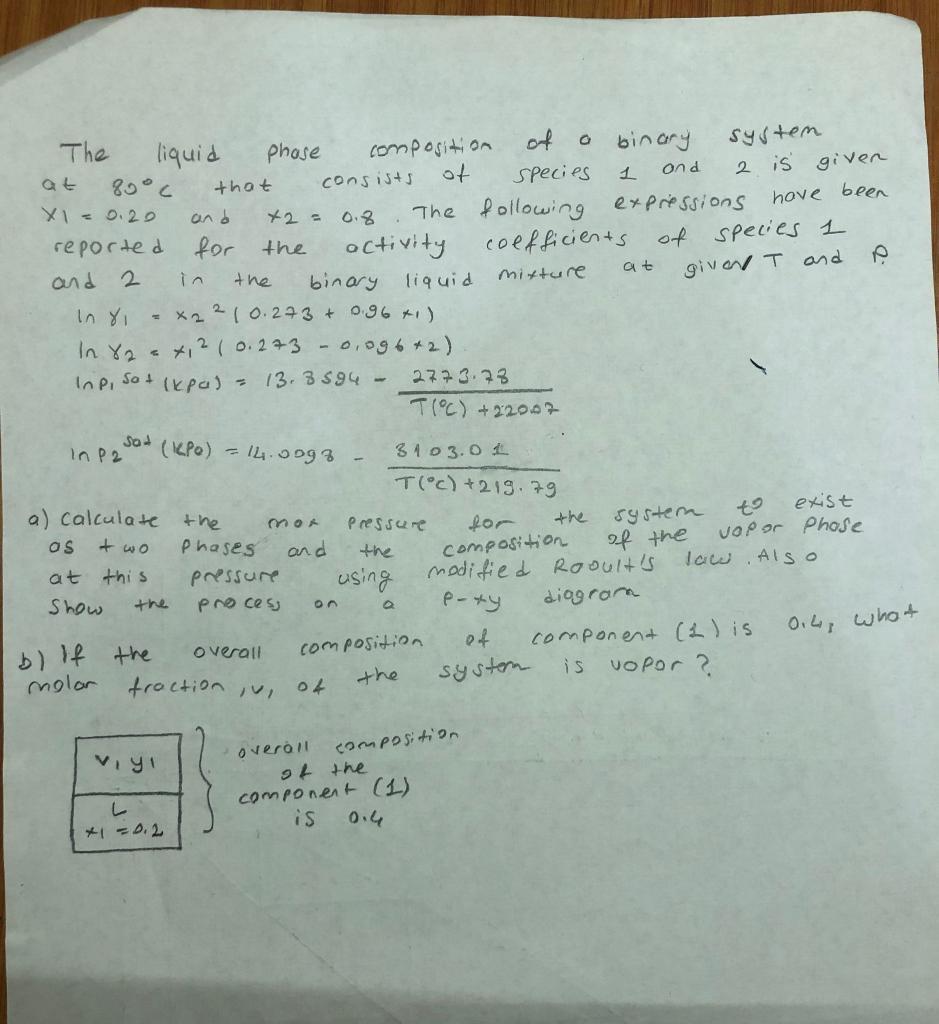 The liquid phase composition of a binary system
at 80°C that consists of species 1 and 2 is given
x1 = 0.20 and x2 = 0.8. The following expressions have been
reported for the activity coefficients of species 1
and 2 in the binary liquid mixture at given T and P.
ln γ1 = x2² (0.273 + 0.96 x1)
ln γ2 = x1² (0.273 - 0,096 x2)
ln P1 sat (kPa) = 13.8594 - 2773.78 / T(°C) + 220.07
ln P2 sat (kPa) = 14.0098 - 3103.01 / T(°C) + 219.79
a) Calculate the max pressure for the system to exist
as two phases and the composition of the vapor phase
at this pressure using modified Raoult's law. Also
Show the process on a P-xy diagram
b) If the overall composition of component (1) is 0.4, what
molar fraction, v, of the system is vapor?
v, y1
L
x1 = 0.2
overall composition
of the
component (1)
is 0.4